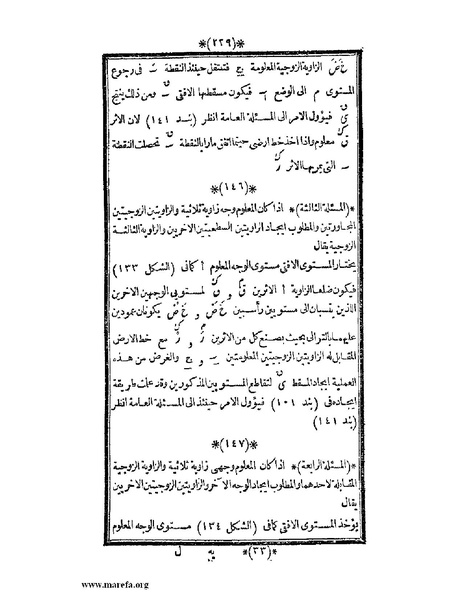 *(٢٢٩)*
الزاوية الزوجية المعلومة فتنتقل حينئذ النقطة فى رجوع
المستوى م الى الوضع فيكون مسقطها الافقى ومن ذلك ينتج
فيؤول الامر الى المسئلة العامة انظر (بند ١٤١) لان الاثر
معلوم واذا اخذ خط ارضى حيثما اتفق مارا بالنقطة تحصلت النقطة
التى يمر بها الاثر
*(١٤٦)*
*(المسئلة الثالثة)* اذا كان المعلوم وجه زاوية ثلاثية والزاويتين الزوجيتين
المجاورتين والمطلوب ايجاد الزاويتين السطحيتين الاخريين والزاوية الثالثة
الزوجية يقال
يختار المستوى الافقى مستوى الوجه المعلوم ا كما فى (الشكل ١٣٣)
فيكون ضلعا الزاوية ا الاثرين و لمستويى الوجهين الاخرين
اللذين ينسبان الى مستويين رأسيين و يكونان عمودين
على بالتوالى بحيث يصنع كل من الاثرين و مع خط الارض
المقابل له الزاويتين الزوجيتين المعلومتين و والغرض من هذه
العملية ايجاد المسقط لتقاطع المستويين المذكورين وقد علمت طريقة
ايجاده فى (بند ١٠١) فيؤول الامر حينئذ الى المسئلة العامة انظر
(بند ١٤١)
*(١٤٧)*
*(المسئلة الرابعة)* اذا كان المعلوم وجهى زاوية ثلاثية والزاوية الزوجية
المقابلة لاحدهما والمطلوب ايجاد الوجه الآخر والزاويتين الزوجيتين الاخريين
يقال
يؤخذ المستوى الافقى كما فى (الشكل ١٣٤) مستوى الوجه المعلوم
*(٣٣)* يه ل
www.marefa.org